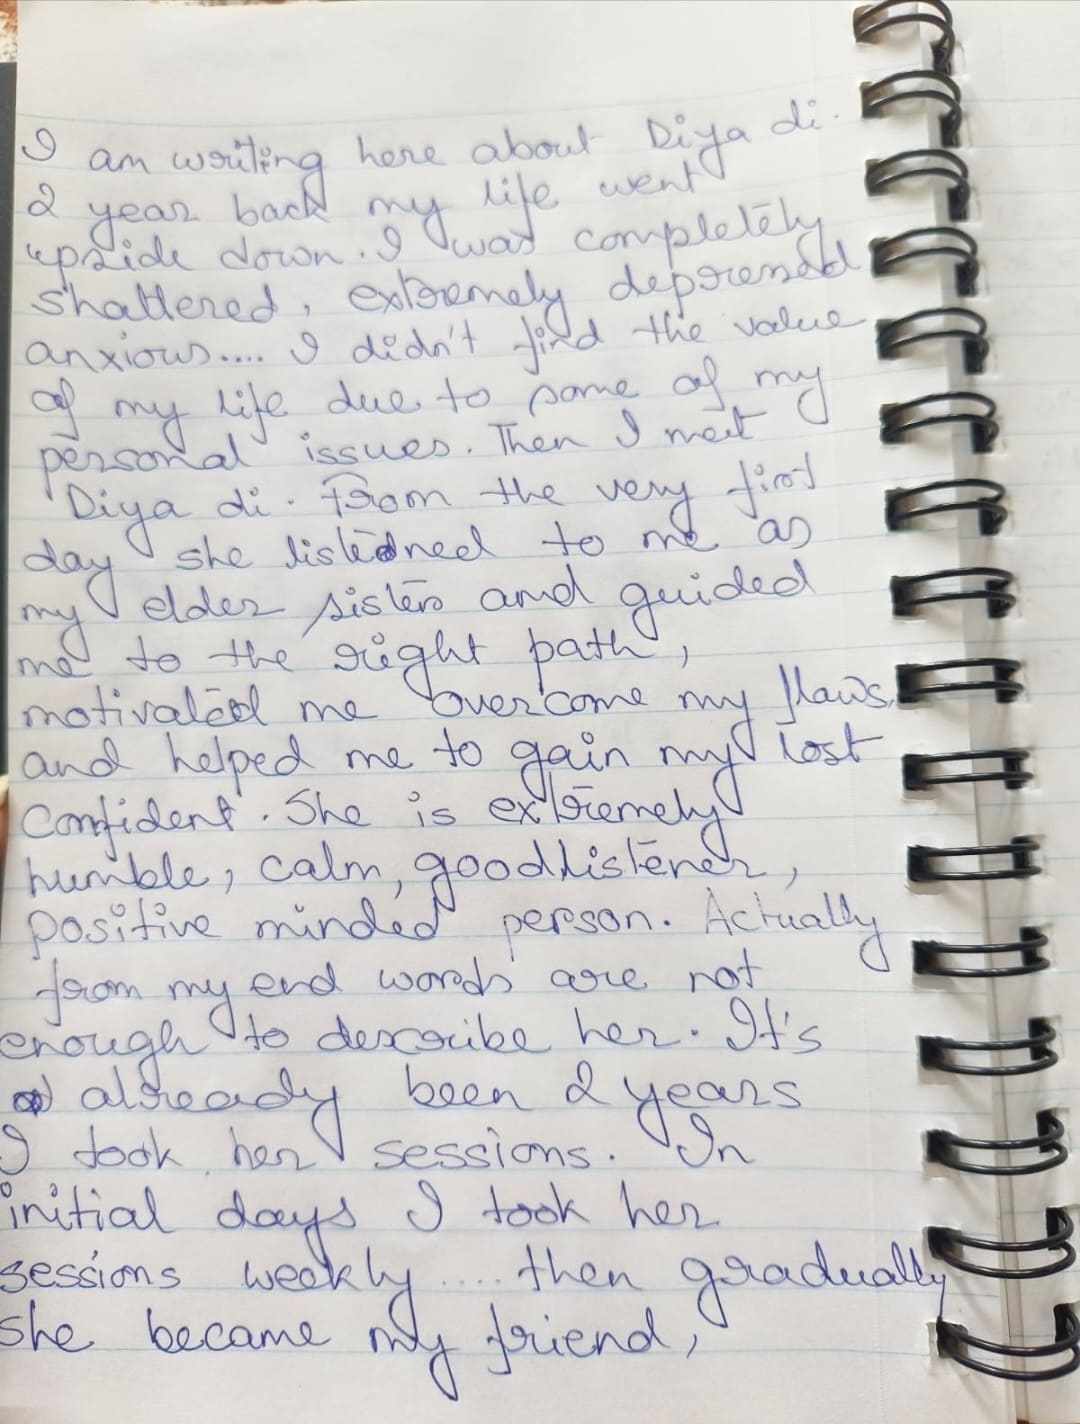 I am writing here about Diya di.
2 year back my life went
upside down. I was completely
shattered, extremely depressed
anxious.... I didn't find the value
of my life due to some of my
personal issues. Then I meet
Diya di. From the very first
day she listedned to me as
my elder sister and guided
me to the right path,
motivated me overcome my flaws,
and helped me to gain my lost
confident. She is extremely
humble, calm, good listener,
positive minded person. Actually
from my end words are not
enough to describe her. It's
already been 2 years
I took her sessions. In
initial days I took her
sessions weekly.... then gradually
she became my friend,